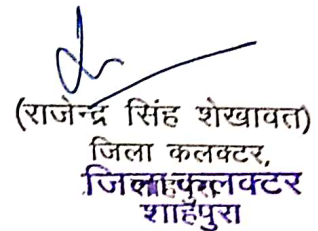 (राजेन्द्र सिंह शेखावत)
जिला कलक्टर,
जिला कलक्टर
शाहपुरा